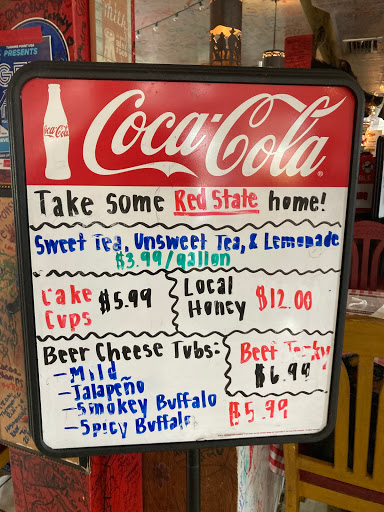 PRESENTS
Coca-Cola
Coca-Cola
Take some Red State home!
Sweet Tea, Unsweet Tea, & Lemonade
$3.99/gallon
Cake Cups $5.99
Local Honey $12.00
Beer Cheese Tubs:
-Mild
-Jalapeño
-Smokey Buffalo
-Spicy Buffalo
$5.99
Beef
$6.99